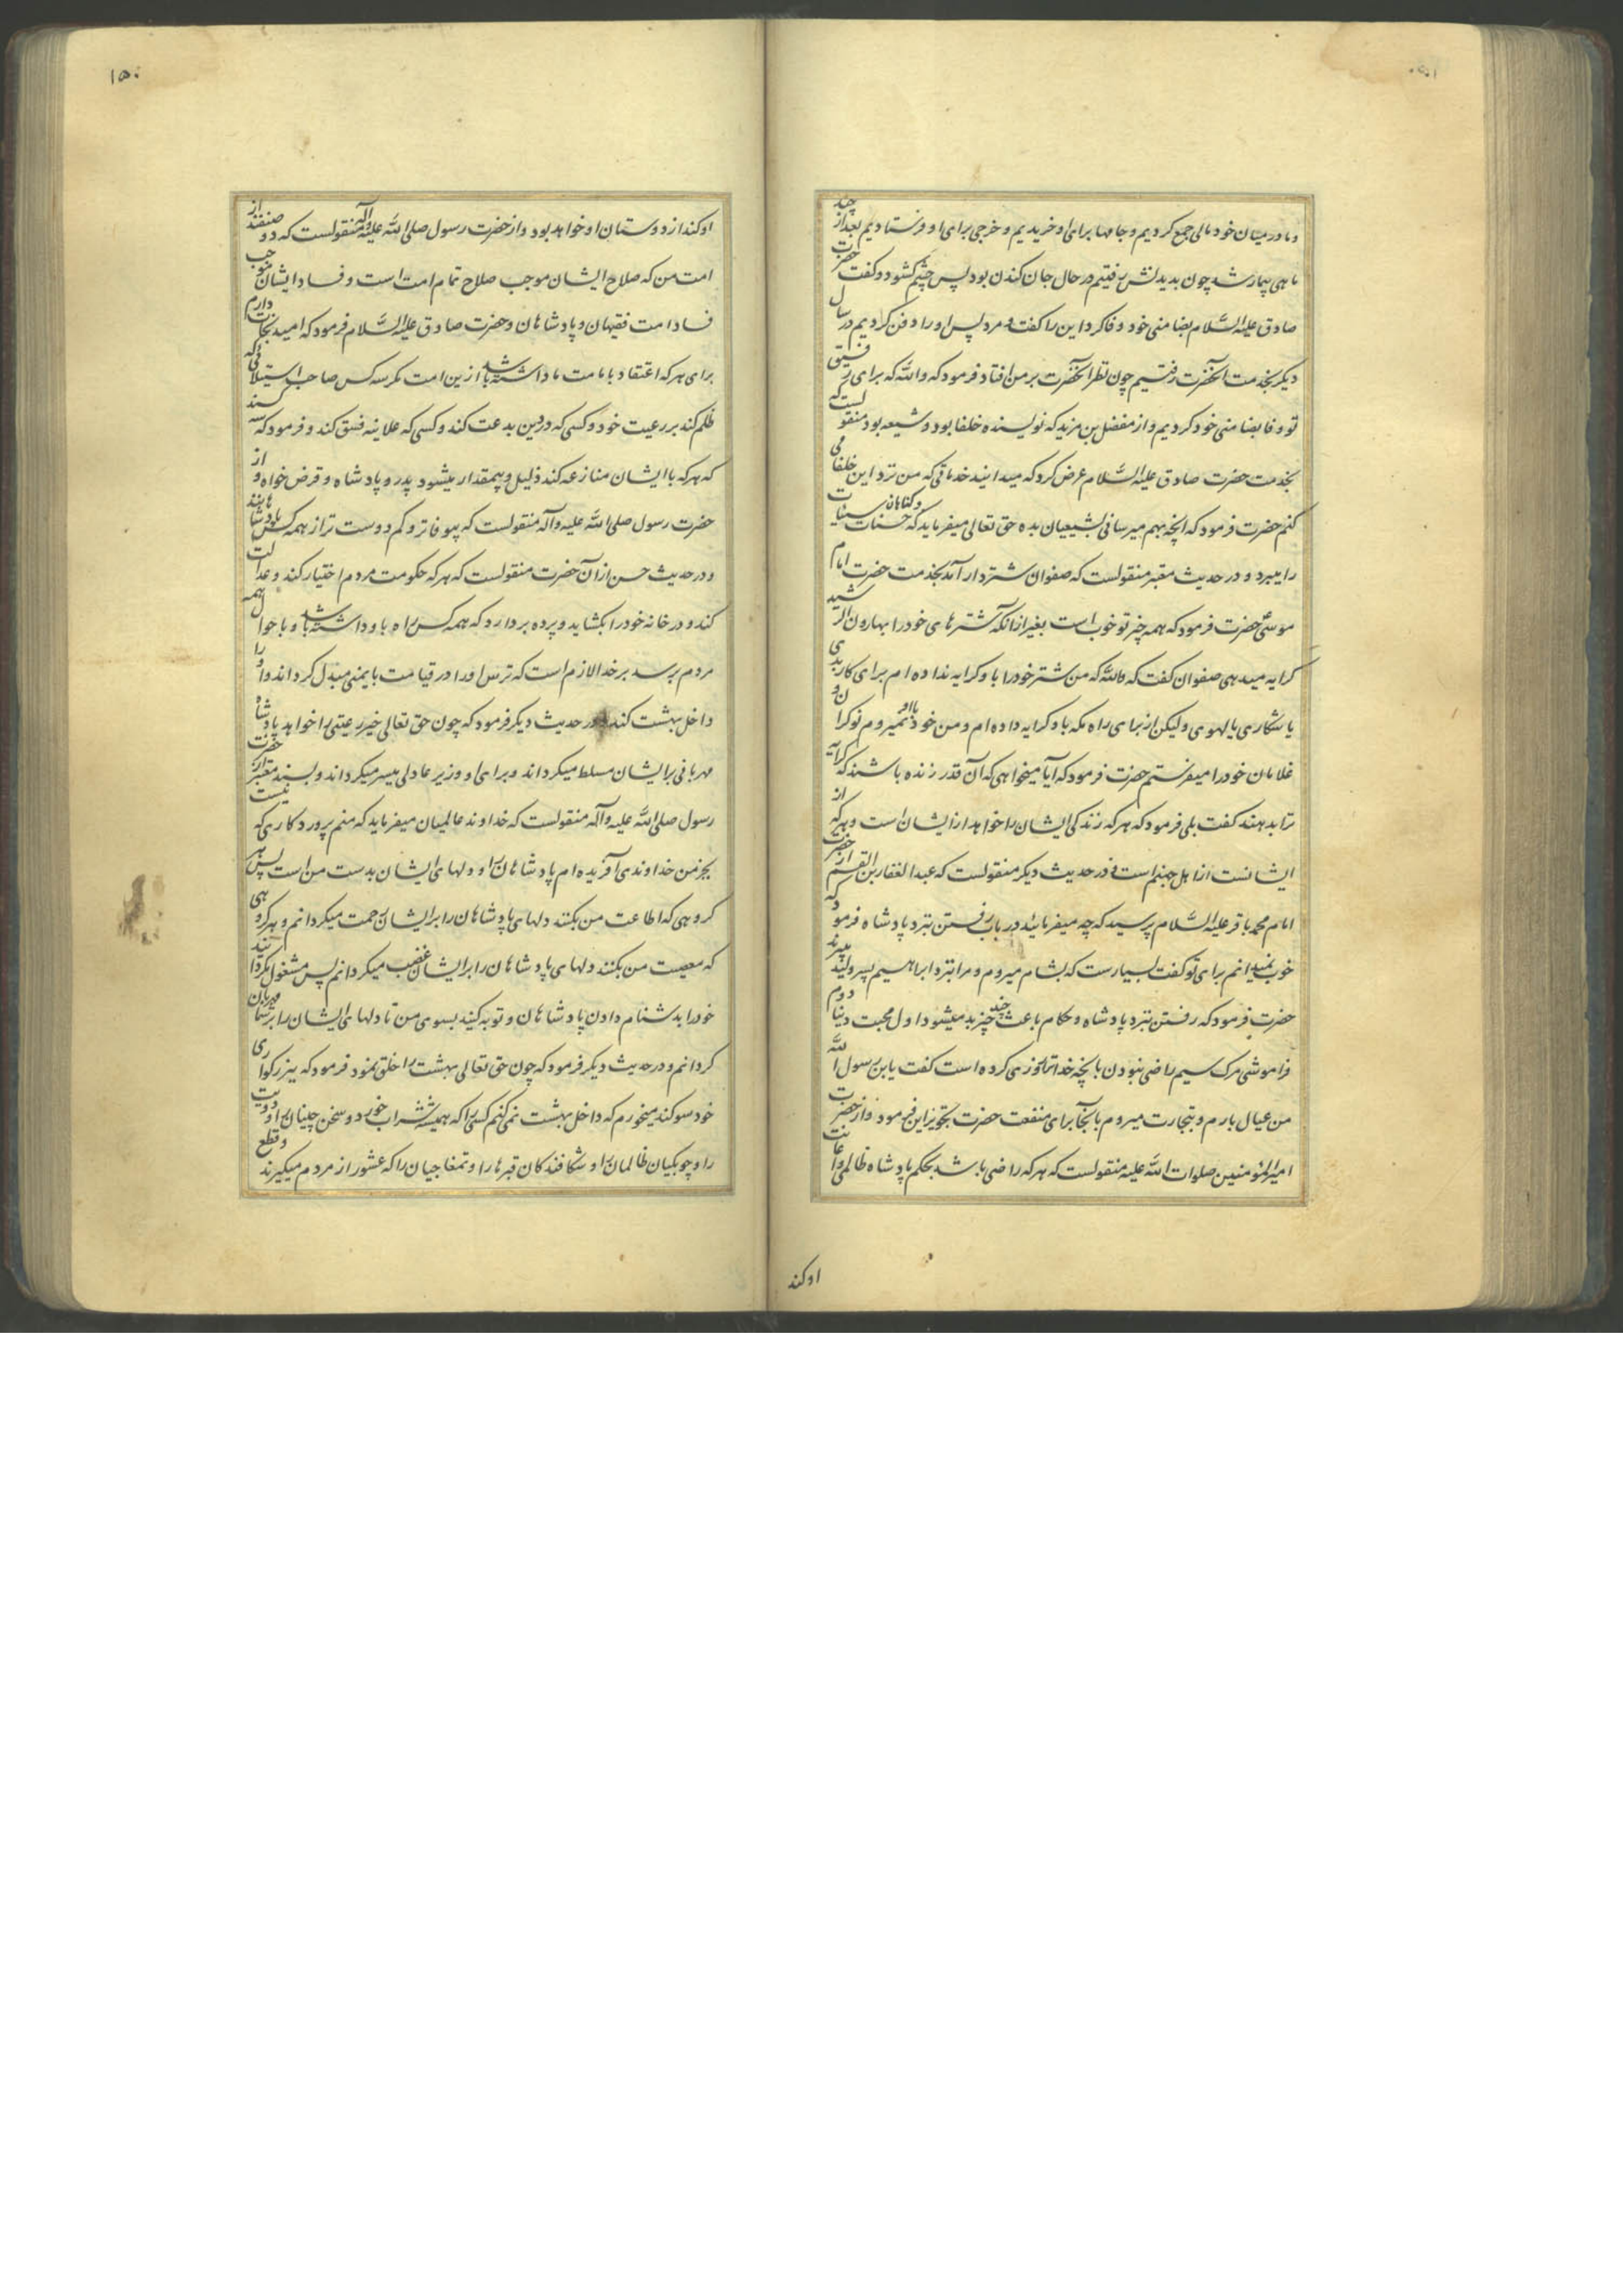 و ما در میان خود مالی جمع کردیم و جامها برای او خریدیم و خرجی برای او فرستادیم بعد از چند
ماهی بیمار شد چون بدیدنش رفتیم در حال جان کندن بود پس چشم کشود و کفت حضرت
صادق علیه السلام بضامنی خود وفا کرد این را کفت و مرد پس او را دفن کردیم در سال
دیکر بخدمت آنحضرت رفتیم چون نظر آنحضرت بر من افتاد فرمود که والله که برای رفیق
تو وفا بضامنی خود کردیم و از مفضل بن مزید که نویسنده خلفا بود و شیعه بود منقولست که
بخدمت حضرت صادق علیه السلام عرض کرد که میدانید خدماتی که من نزد این خلفا می
کنم حضرت فرمود که آنچه بهم میرسانی بشیعیان بده حق تعالی میفرماید که حسنات و کناهان سیئات
را میبرد و در حدیث معتبر منقولست که صفوان شتردار آمد بخدمت حضرت امام
موسی حضرت فرمود که همه چیز تو خوب است بغیر از آنکه شترهای خود را بهارون الرشید
کرایه میدهی صفوان کفت که والله که من شتر خود را باو کرایه نداده ام برای کار بدی
یا شکاری یا لهوی ولیکن از برای راه مکه باو کرایه داده ام و من خود با او نمیروم نوکران و
غلامان خود را میفرستم حضرت فرمود که آیا میخواهی که آن قدر زنده باشند که کرایه
ترا بدهند کفت بلی فرمود که هر که زندکی ایشان را خواهد از ایشان است و هر که از
ایشانست از اهل جهنم است و در حدیث دیکر منقولست که عبد الغفار بن القسم از حضرت
امام محمد باقر علیه السلام پرسید که چه میفرمائید در باب رفتن بنزد پادشاه فرمود که
خوب نمیدانم برای تو کفت بسیارست که بشام میروم و مرا بنزد ابراهیم پسر ولید میبرند
حضرت فرمود که رفتن بنزد پادشاه و حکام باعث چند چیز بد میشود اول محبت دنیا دوم
فراموشی مرک سیم راضی نبودن بانچه خدا ترا روزی کرده است کفت یابن رسول الله
من عیال بارم و بتجارت میروم بآنجا برای منفعت حضرت تجویز این فرمود و از حضرت
امیر المومنین صلوات الله علیه منقولست که هر که راضی باشد بحکم پادشاه ظالمی و اعانت
اوکند
۱۵۰
او کند از دوستان او خواهد بود و از حضرت رسول صلی الله علیه وآله منقولست که دو صنفند از
امت من که صلاح ایشان موجب صلاح تمام امت است و فساد ایشان موجب
فساد امت فقیهان و پادشاهان و حضرت صادق علیه السلام فرمود که امید نجات دارم
برای هر که اعتقاد بامامت ما داشته باشد ازین امت مکر سه کس صاحب استیلائی که
ظلم کند بر رعیت خود و کسی که در دین بدعت کند و کسی که علانیه فسق کند و فرمود که سه کسند
که هر که با ایشان منازعه کند ذلیل و بیمقدار میشود پدر و پادشاه و قرض خواه و از
حضرت رسول صلی الله علیه وآله منقولست که بیوفاتر و کم دوست تر از همه کس پادشاهانند
و در حدیث حسن از آن حضرت منقولست که هر که حکومت مردم اختیار کند و عدالت
کند و در خانه خود را بکشاید و پرده بردارد که همه کس راه باو داشته باشد و باحوال همه
مردم برسد بر خدا لازم است که ترس او را در قیامت بایمنی مبدل کرداند و او را
داخل بهشت کند و در حدیث دیکر فرمود که چون حق تعالی خیر رعیتی را خواهد پادشاه
مهربانی برایشان مسلط میکرداند و برای او وزیر عادلی میسر میکرداند و بسند معتبر از حضرت
رسول صلی الله علیه وآله منقولست که خداوند عالمیان میفرماید که منم پروردکاری که نیست
بجز من خداوندی آفریده ام پادشاهان را و دلهای ایشان بدست من است پس هر
کروهی که اطاعت من بکنند دلهای پادشاهان را برایشان رحمت میکردانم و هر کروهی
که معصیت من بکنند دلهای پادشاهان را برایشان غضب میکردانم پس مشغول مکردانید
خود را بدشنام دادن پادشاهان و توبه کنید بسوی من تا دلهای ایشان را بر شما مهربان
کردانم و در حدیث دیکر فرمود که چون حق تعالی بهشت را خلق نمود فرمود که ببزرکواری
خود سوکند میخورم که داخل بهشت نمی کنم کسی را که همیشه شراب خورد و سخن چینان را و دیوث
را و چوبکیان ظالمان را و شکافندکان قبرها را و تمغاچیان را که عشور از مردم میکیرند و قطع